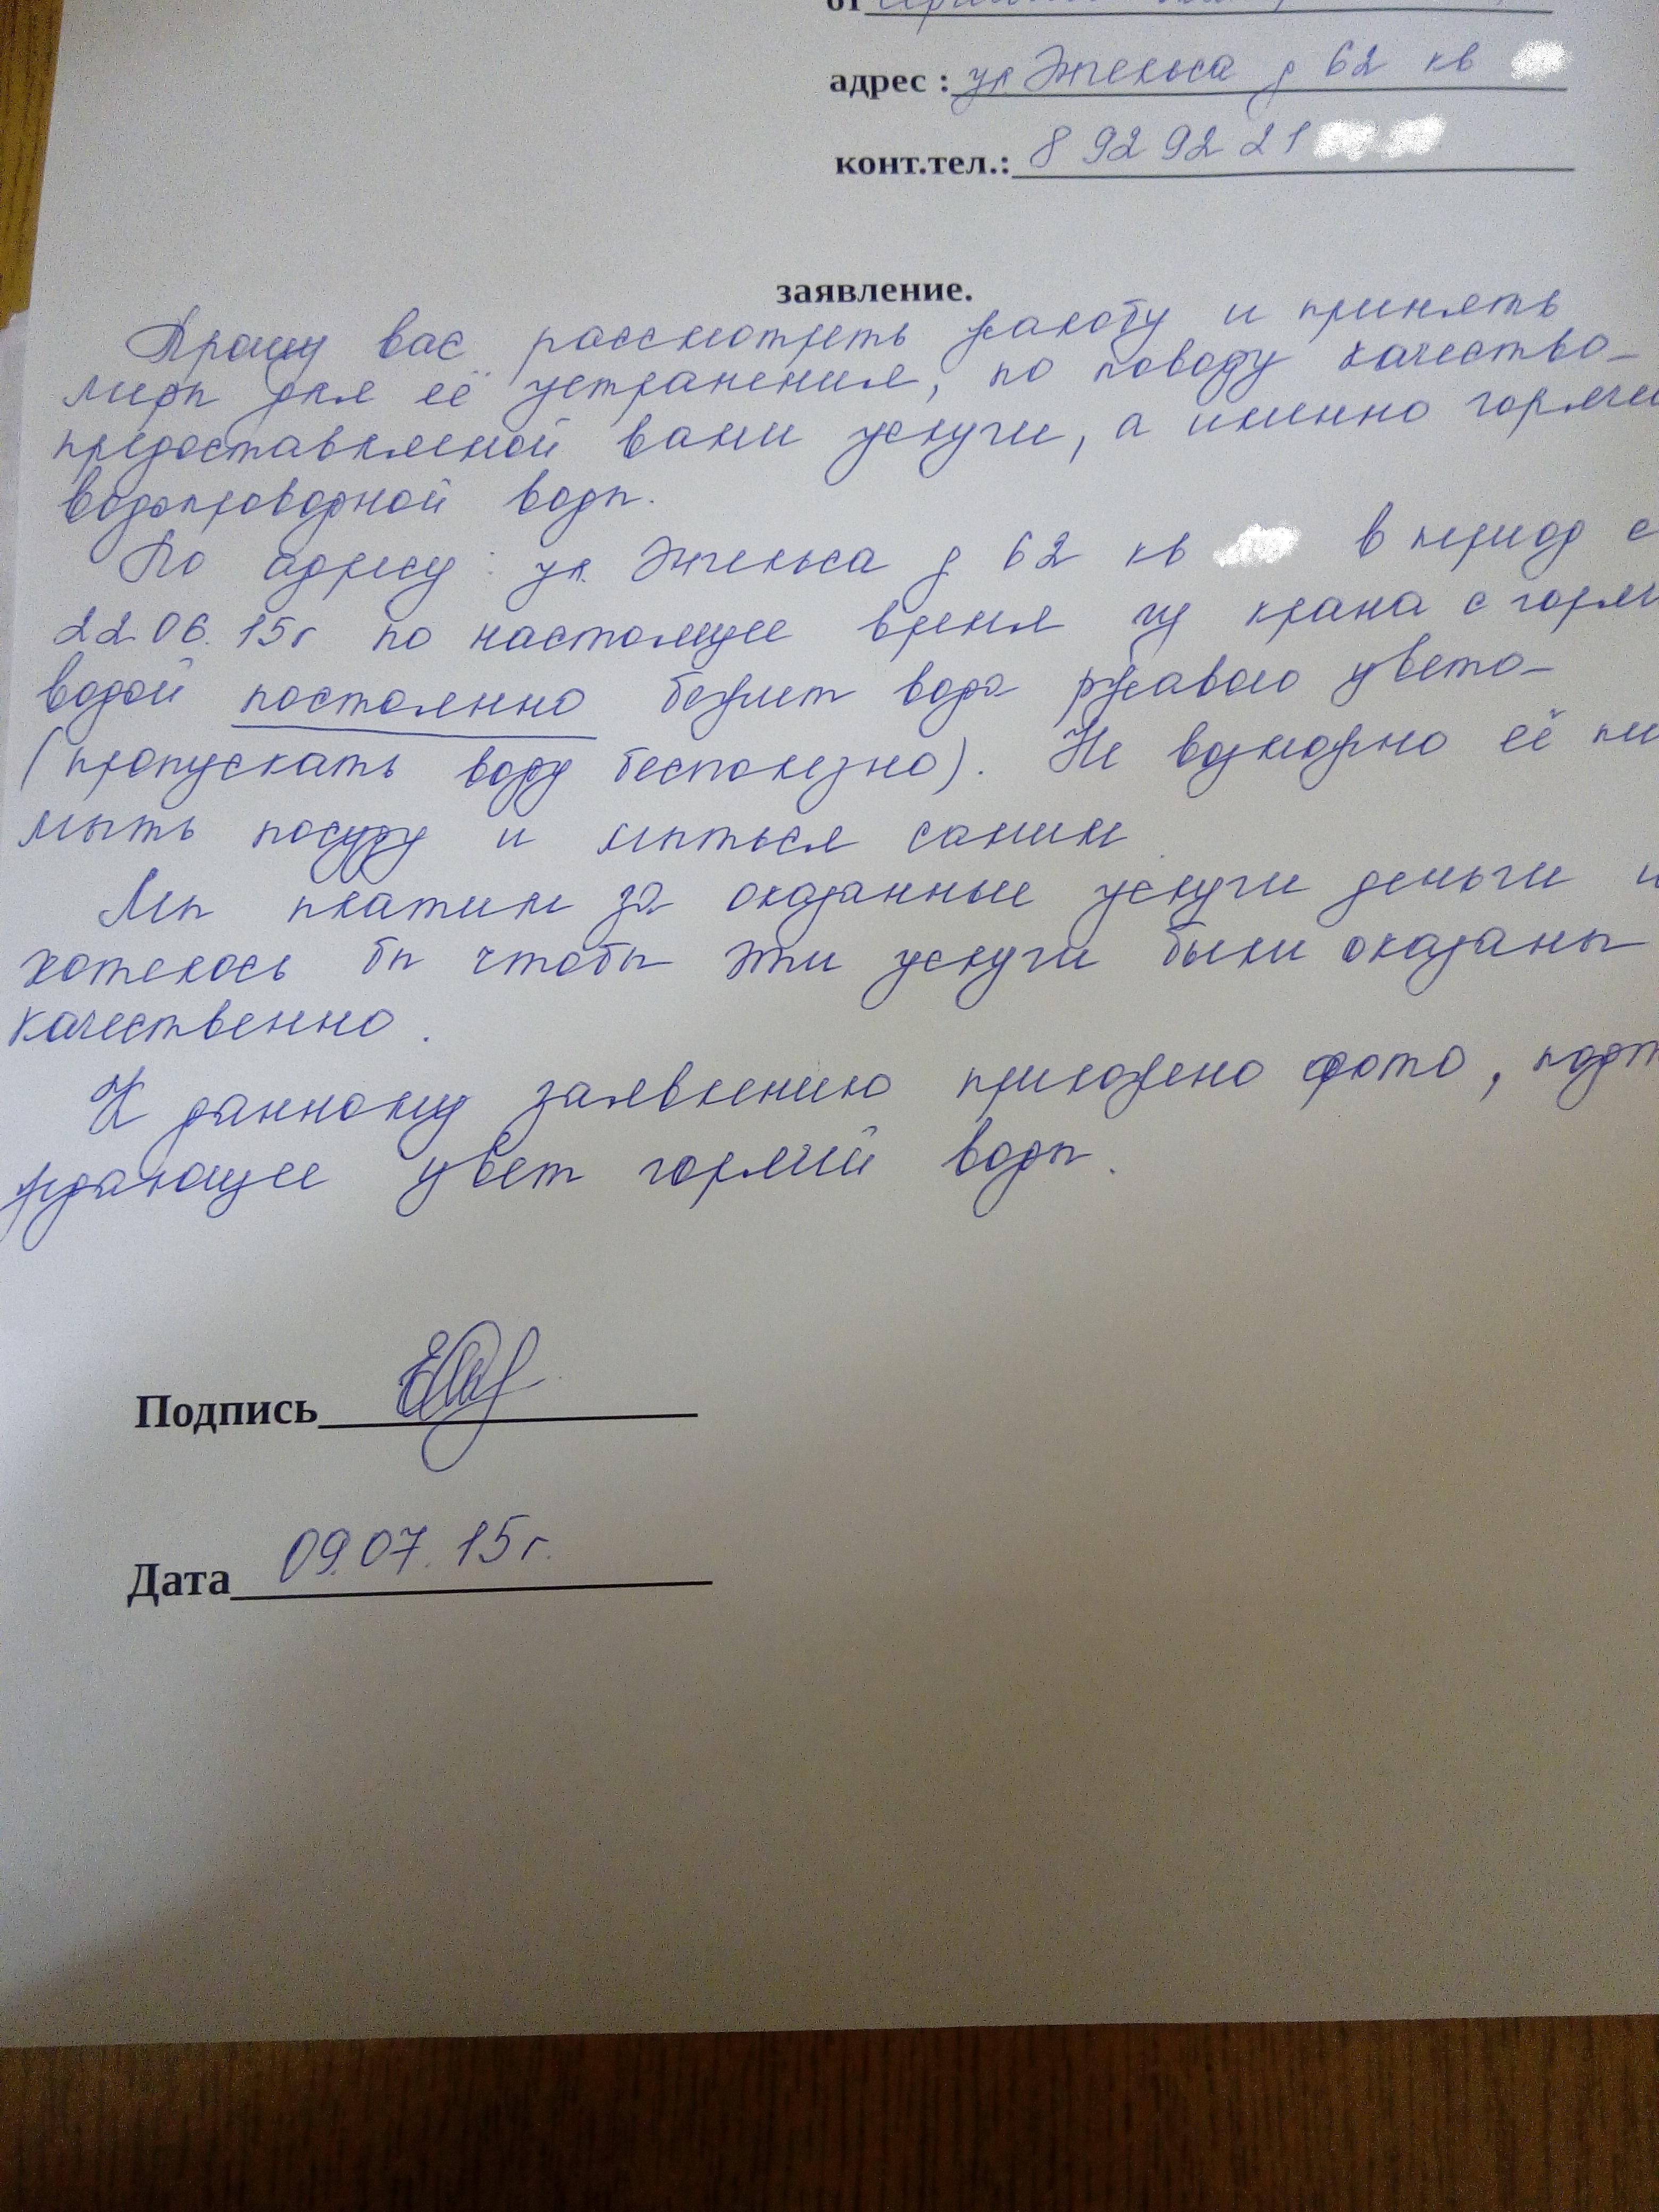 от
адрес : ул. Энгельса д 62 кв
конт.тел.: 8 92 92 21
заявление.
Прошу вас рассмотреть жалобу и принять
меры для её устранения, по поводу качество
предоставленой вами услуги, а именно горячей
водопроводной воды.
По адресу: ул. Энгельса д 62 кв в период с
22.06.15г по настоящее время из крана с
водой постоянно бежит вода ржавого цвета
(пропускать воду бесполезно). Не возможно её
мыть посуду и мыться самим
Мы платим за оказанные услуги деньги и
хотелось бы чтобы эти услуги были оказаны
качественно.
К данному заявлению приложено фото, подт
ждающее цвет горячей воды.
Подпись
Дата 09.07.15г.